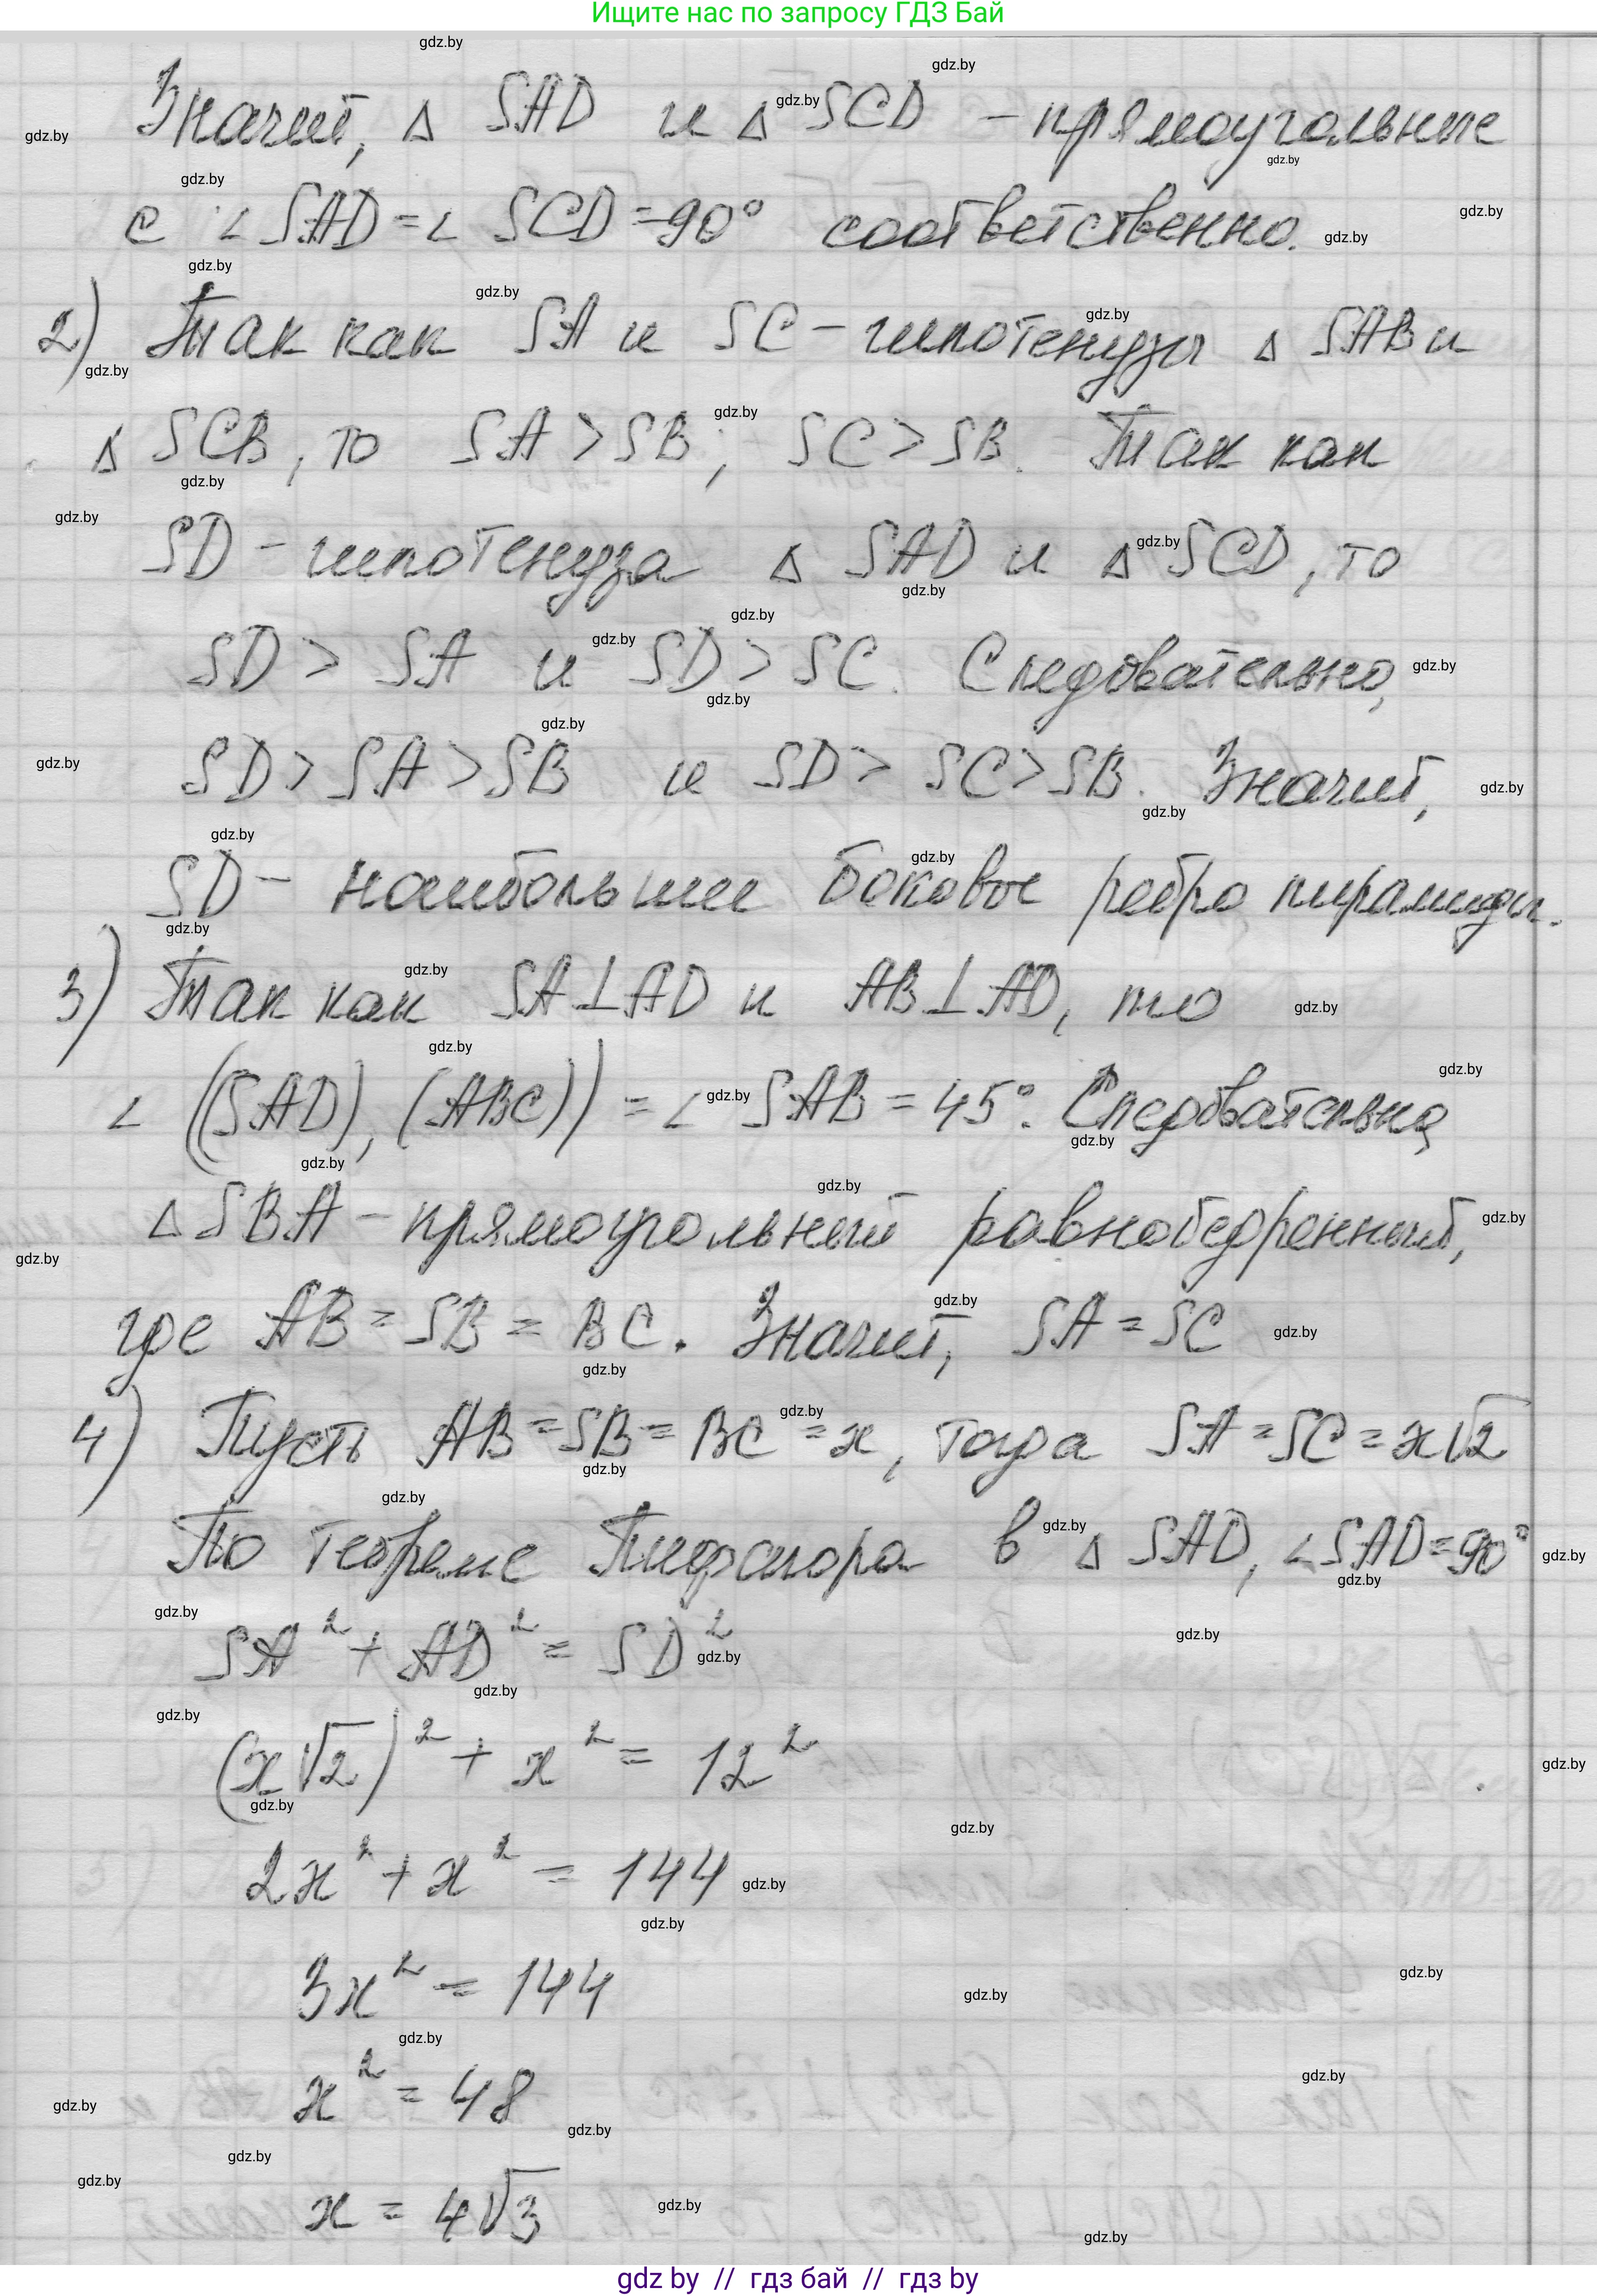 Ищите нас по запросу ГДЗ Бай
Значит, Δ SAD и Δ SCD - прямоугольные
с ∠SAD = ∠ SCD = 90° соответственно.
2) Так как SA и SC - гипотенузы Δ SAB и
Δ SCB, то SA > SB; SC > SB. Так как
SD - гипотенуза Δ SAD и Δ SCD, то
SD > SA и SD > SC. Следовательно,
SD > SA > SB и SD > SC > SB. Значит,
SD - наибольшее боковое ребро пирамиды.
3) Так как SA ⊥ AD и AB ⊥ AD, то
∠ ((SAD), (ABC)) = ∠ SAB = 45°. Следовательно,
Δ SBA - прямоугольный равнобедренный,
где AB = SB = BC. Значит, SA = SC
4) Пусть AB = SB = BC = x, тогда SA = SC = x√2
По теореме Пифагора в Δ SAD, ∠SAD = 90°
SA² + AD² = SD²
(x√2)² + x² = 12²
2x² + x² = 144
3x² = 144
x² = 48
x = 4√3
gdz by // гдз бай // гдз by